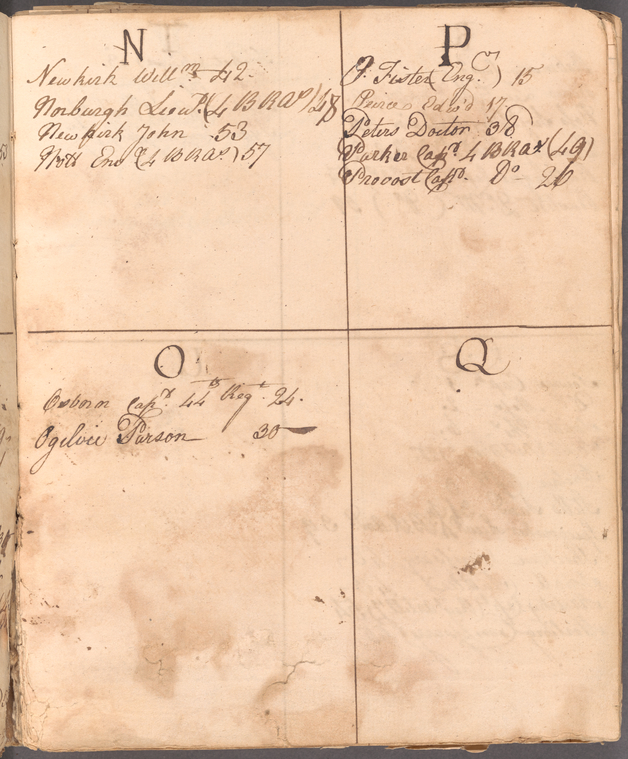 N
Newkirk Will.m 42.
Norburgh Lieu.t (4 BRAn) 48
Newkirk John 53
Nott Ens.n (4 BRAn) 57
P
Fister (Eng.r) 15
Peirce Edw'd 17
Peters Doctor 38
Parker Capt. 4 BRAn (49)
Provost Capt. Do 26
O
Osborn Capt. 44th Regt. 24.
Ogilvie Parson 30
Q